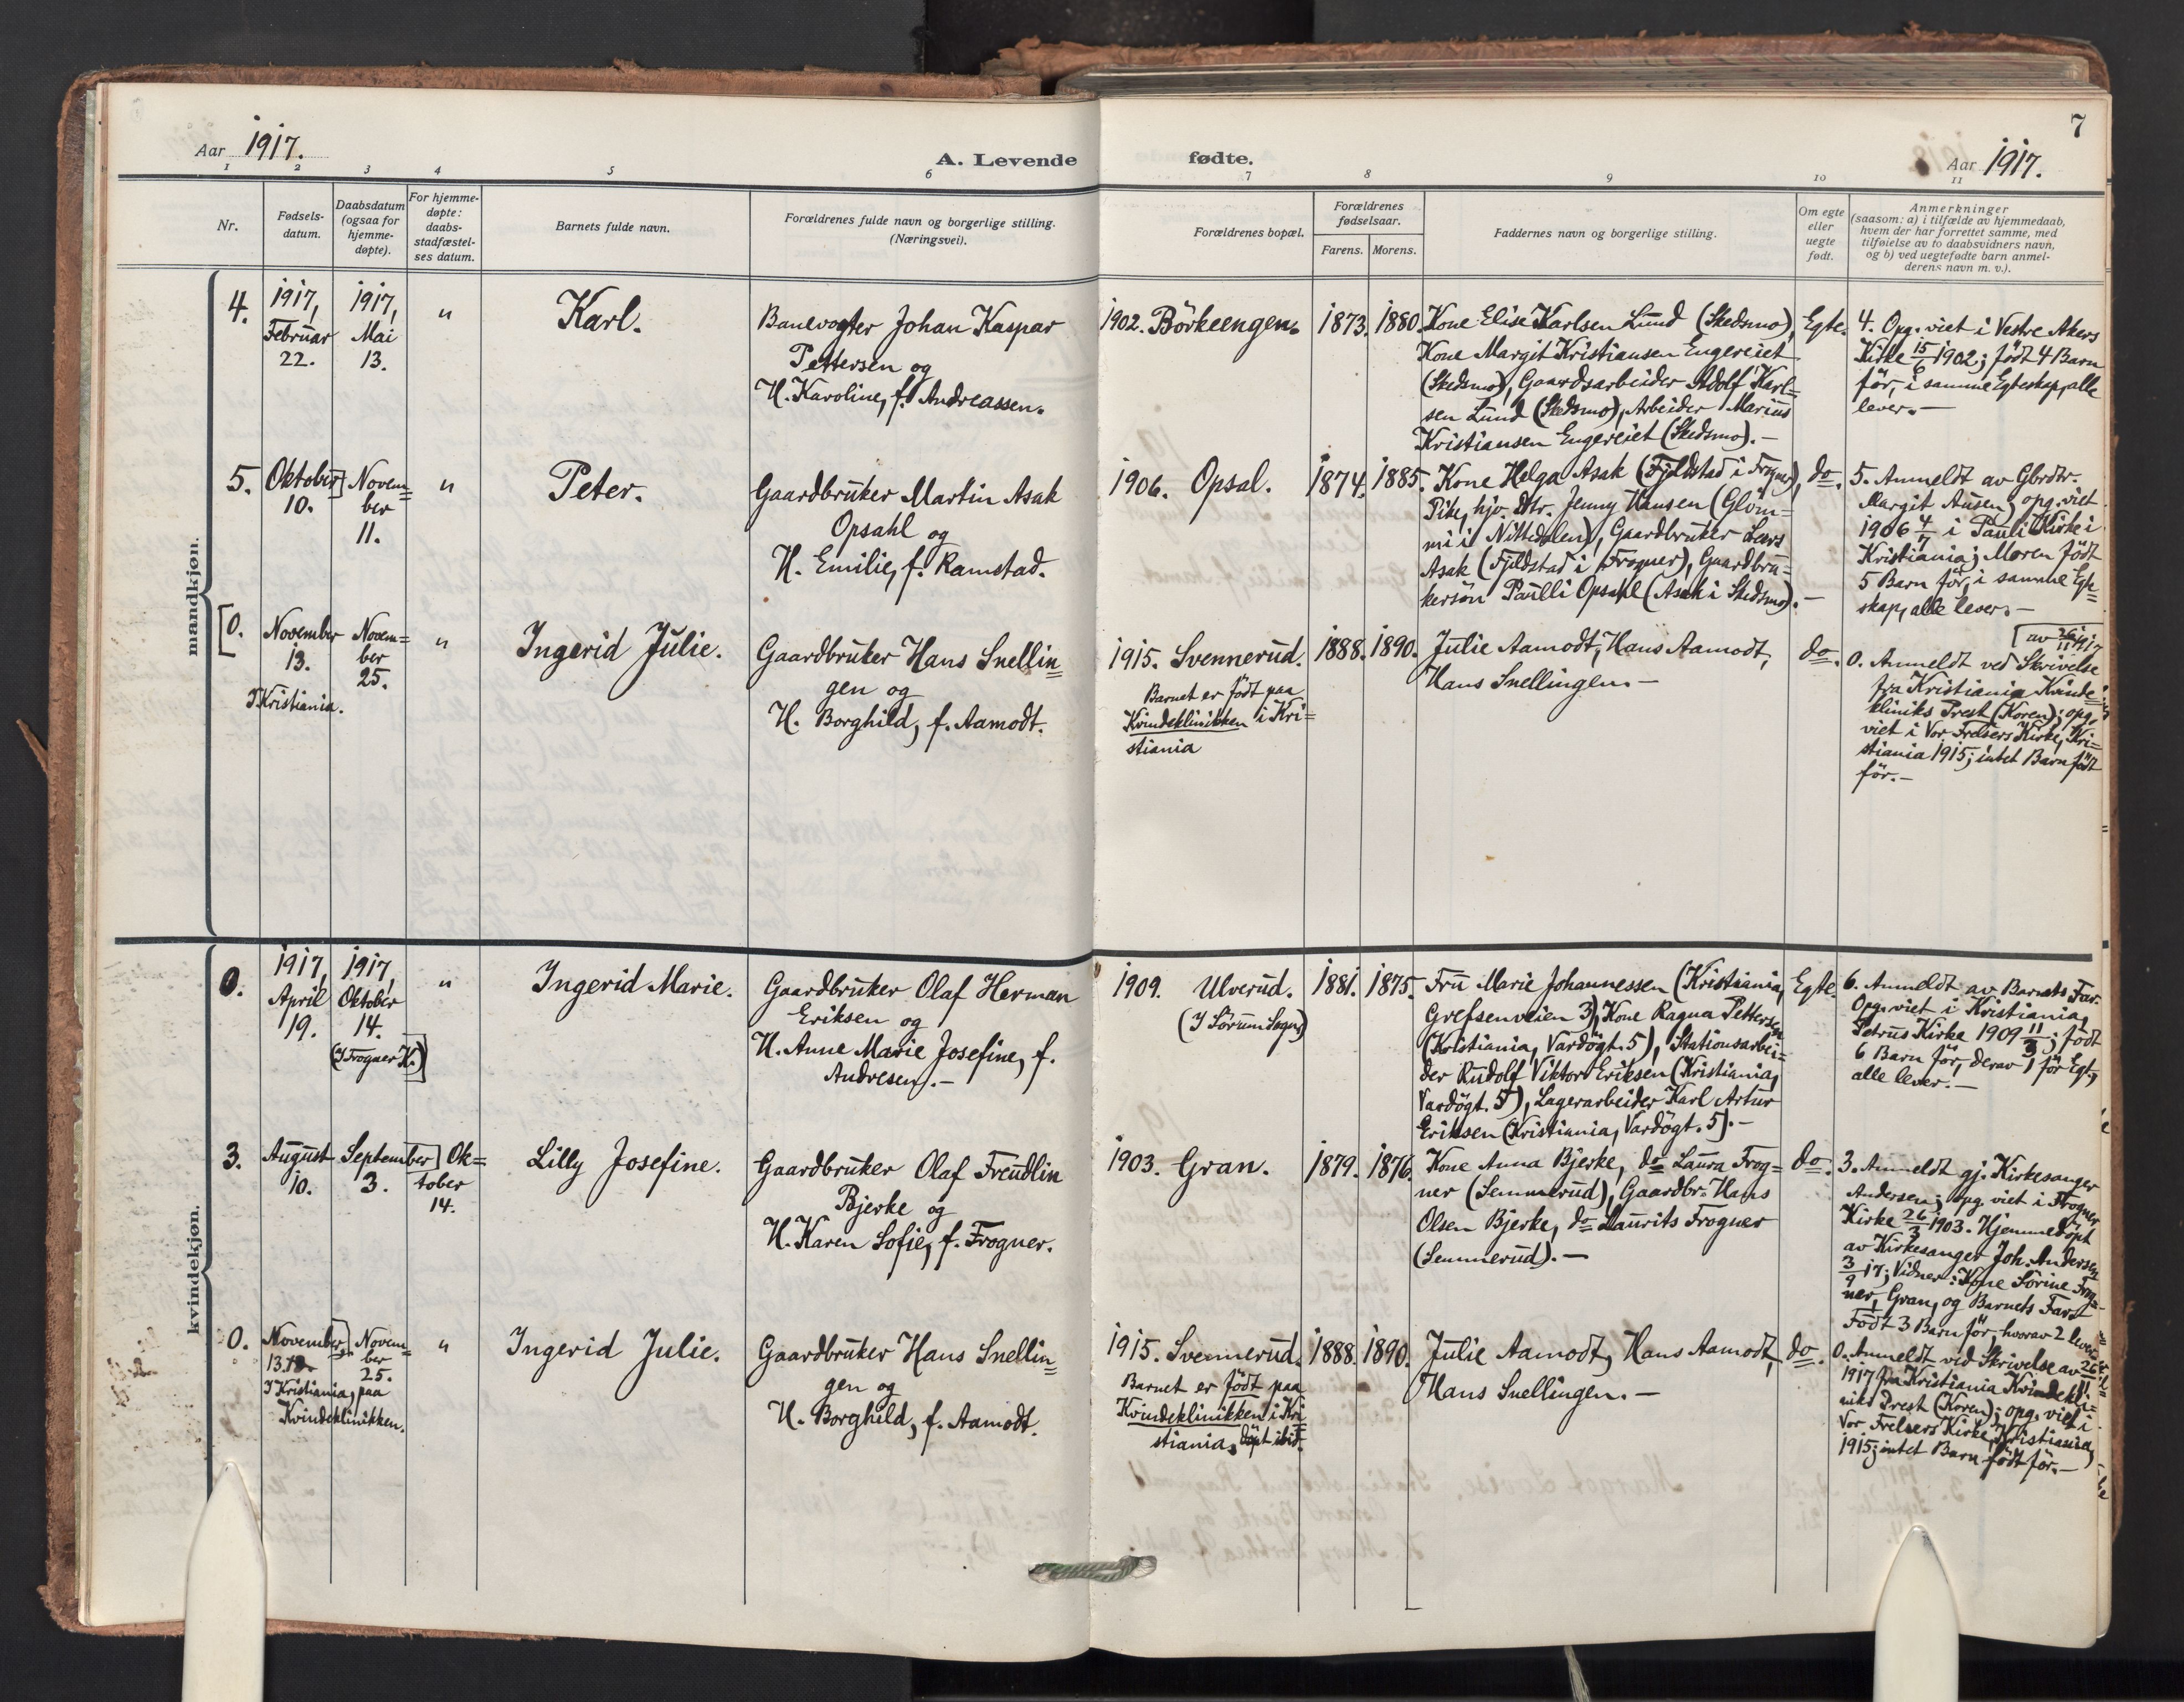 Aar 1917.
A. Levende
fødte.
Aar 1917.
7
1
2
3
4
5
6
7
8
9
10
11
Nr.
Fødsels-
datum.
Daabsdatum
(ogsaa for
hjemme-
døpte).
For hjemme-
døpte:
daabs-
stadfæstel-
ses datum.
Barnets fulde navn.
Forældrenes fulde navn og borgerlige stilling.
(Næringsvei).
Forældrenes bopæl.
Forældrenes
fødselsaar.
Farens.
Morens.
Faddernes navn og borgerlige stilling.
Om egte
eller
uegte
født.
Anmerkninger
(saasom: a) i tilfælde av hjemmedaab,
hvem der har forrettet samme, med
tilføielse av to daabsvidners navn,
og b) ved uegtefødte barn anmel-
derens navn m. v.).
mandkjøn.
4.
1917,
Februar
22.
1917,
Mai
13.
"
Karl.
Banevogter Johan Kaspar
Pettersen og
H. Karoline, f. Andreassen.
1902. Börkeengen.
1873.
1880.
Kone Elise Karlsen Lund (Skedsmo),
Kone Margit Kristiansen Engereiet
(Skedsmo), Gaardsarbeider Adolf Karl=
sen Lund (Skedsmo), Arbeider Marius
Kristiansen Engereiet (Skedsmo).-
Egte.
4. Opg. viet i Vestre Akers
Kirke 15/6 1902; født 4 Barn
før, i samme Egteskap, alle
lever.-
5.
Oktober]
10.
Novem=
ber
11.
"
Peter.
Gaardbruker Martin Asak
Opsahl og
H. Emilie, f. Ramstad.
1906. Opsal.
1874.
1885.
Kone Helga Asak (Fjeldstad i Frogner),
Pike, hjv. Dtr. Jenny Hansen (Glöm=
mi i Nittedalen), Gaardbruker Lars
Asak (Fjeldstad i Frogner), Gaardbru=
kersön Paulli Opsahl (Asak i Skedsmo).-
do.
5. Anmeldt av Gbrdtr.
Margit Ausen; opg. viet
1906 4/7 i Pauli Kirke i
Kristiania; Moren født
5 Barn før, i samme Egte=
skap, alle lever.-
[0.
November
13.
I Kristiania.
Novem=
ber
25.
"
Ingerid Julie.
Gaardbruker Hans Snellin=
gen og
H. Borghild, f. Aamodt.
1915. Svennerud.
Barnet er født paa
Kvindeklinikken i Kri=
stiania
1888.
1890.
Julie Aamodt, Hans Aamodt,
Hans Snellingen.-
do.
[av 26/11 1917
0. Anmeldt ved Skrivelse
fra Kristiania Kvinde=
kliniks Prest (Koren); opg.
viet i Vor Frelsers Kirke, Kri=
stiania 1915; intet Barn født
før.-
kvindekjøn.
0.
1917,
April
19.
1917,
Oktober
14.
(I Frogner K.)]
"
Ingerid Marie.
Gaardbruker Olaf Herman
Eriksen og
H. Anne Marie Josefine, f.
Andresen.-
1909. Ulverud.
(I Sörum Sogn)
1881.
1875.
Fru Marie Johannessen (Kristiania,
Grefsenveien 3), Kone Ragna Pettersen
(Kristiania, Vardögt. 5), Stationsarbei=
der Rudolf Viktor Eriksen (Kristiania,
Vardögt. 5), Lagerarbeider Karl Artur
Eriksen (Kristiania, Vardögt. 5).-
Egte.
6. Anmeldt av Barnets Far.
Opg. viet i Kristiania,
Petrus Kirke 1909 11/3; født
6 Barn før, derav 1 før Egt.,
alle lever.-
3.
August
10.
September]
3.
Ok=
tober
14.
Lilly Josefine.
Gaardbruker Olaf Freudlin
Bjerke og
H. Karen Sofie, f. Frogner.
1903. Gran.
1879.
1876.
Kone Anna Bjerke, do Laura Frog=
ner (Semmerud), Gaardbr. Hans
Olsen Bjerke, do Laurits Frogner
(Semmerud).-
do.
3. Anmeldt gj. Kirkesanger
Andersen; opg. viet i Frogner
Kirke 26/3 1903. Hjemmedøpt
av Kirkesanger Joh. Andersen
3/9 17; Vidner: Kone Sörine Frog=
ner, Gran, og Barnets Far.
Født 3 Barn før, hvorav 2 lever
0.
November,]
13.
I Kristiania, paa
Kvindeklinikken.
Novem=
ber
25.
"
Ingerid Julie.
Gaardbruker Hans Snellin=
gen og
H. Borghild, f. Aamodt.
1915. Svennerud.
Barnet er født paa
Kvindeklinikken i Kri
stiania, døpt ibid.
1888.
1890.
Julie Aamodt, Hans Aamodt,
Hans Snellingen.-
do.
0. Anmeldt ved Skrivelse av 26/11
1917 fra Kristiania Kvindekli=
niks Prest (Koren); opg. viet i
Vor Frelsers Kirke, Kristiania,
1915; intet Barn født før.-